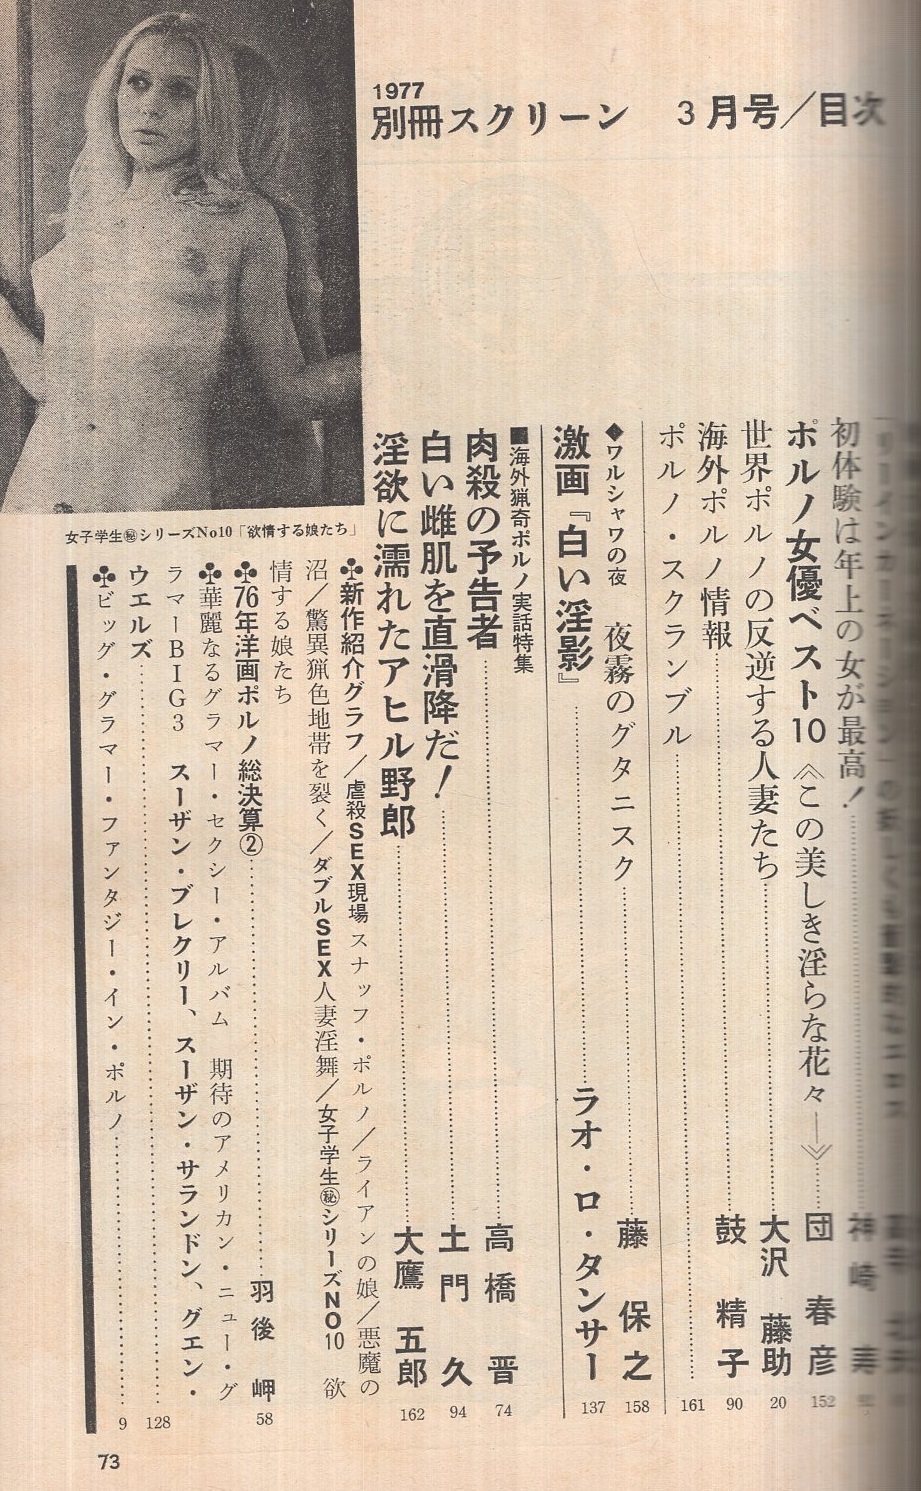 1977
別冊スクリーン 3月号／目次
初体験は年上の女が最高！
ポルノ女優ベスト10 《この美しき淫らな花々―》 団 春彦 152
世界ポルノの反逆する人妻たち 大沢 藤助 20
海外ポルノ情報 鼓 精子 90
ポルノ・スクランブル 161
◆ワルシャワの夜 夜霧のグタニスク 藤 保之 158
激画『白い淫影』 ラオ・ロ・タンサー 137
■海外猟奇ポルノ実話特集
肉殺の予告者 高橋 晋 74
白い雌肌を直滑降だ！ 土門 久 94
淫欲に濡れたアヒル野郎 大鷹 五郎 162
♣新作紹介グラフ／虐殺SEX現場スナッフ・ポルノ／ライアンの娘／悪魔の
沼／驚異猟色地帯を裂く／ダブルSEX人妻淫舞／女子学生㊙シリーズNO10 欲
情する娘たち
♣76年洋画ポルノ総決算② 羽後 岬 58
♣華麗なるグラマー・セクシー・アルバム 期待のアメリカン・ニュー・グ
ラマーBIG3 スーザン・ブレクリー、スーザン・サランドン、グエン・
ウエルズ 128
♣ビッグ・グラマー・ファンタジー・イン・ポルノ 9
女子学生㊙シリーズNo10「欲情する娘たち」
73